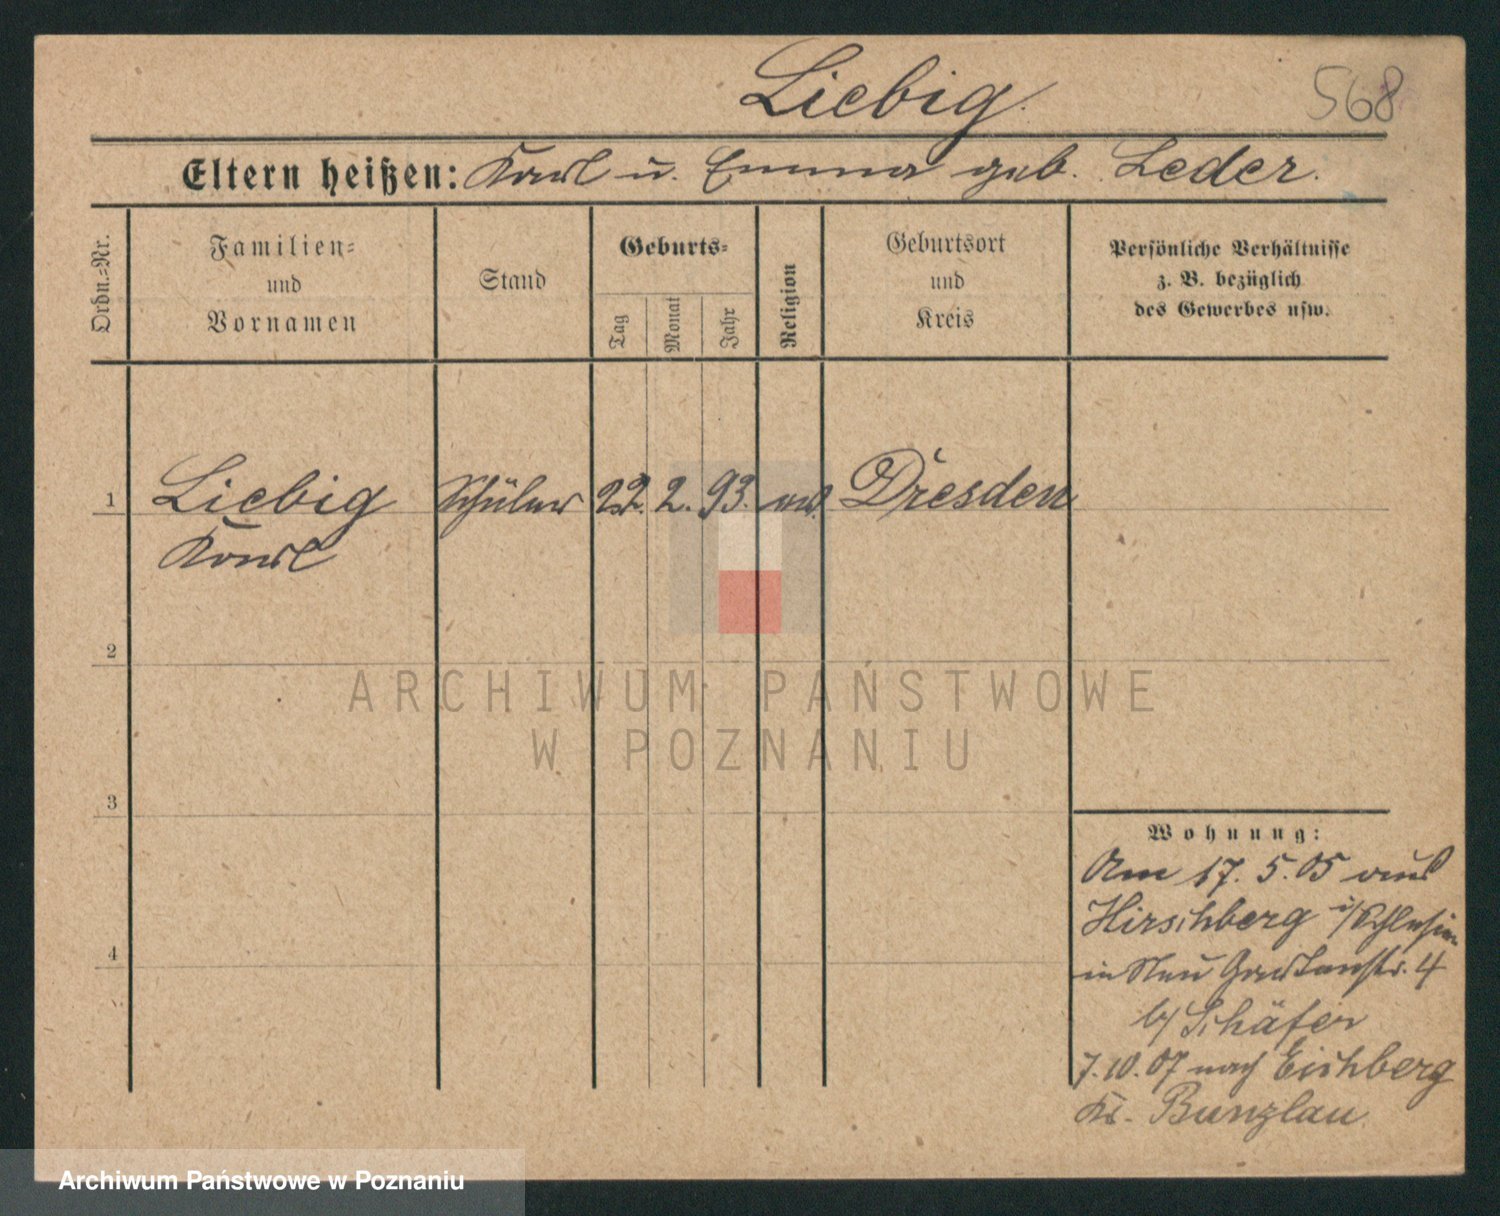 Liebig.
568
Eltern heißen: Karl u. Emma geb. Leder.
Ordn.=Nr.
Familien=
und
Vornamen
Stand
Geburts=
Tag
Monat
Jahr
Religion
Geburtsort
und
Kreis
Persönliche Verhältnisse
z. B. bezüglich
des Gewerbes usw.
1 Liebig Schüler 22. 2. 93. ev. Dresden
Karl
2
3
4
Wohnung:
Am 17. 5. 05 aus
Hirschberg i/Schlesien
in Neu Gartenstr. 4
b/ Schäfer
7. 10. 07 nach Eichberg
Kr. Bunzlau
ARCHIWUM PAŃSTWOWE
W POZNANIU
Archiwum Państwowe w Poznaniu